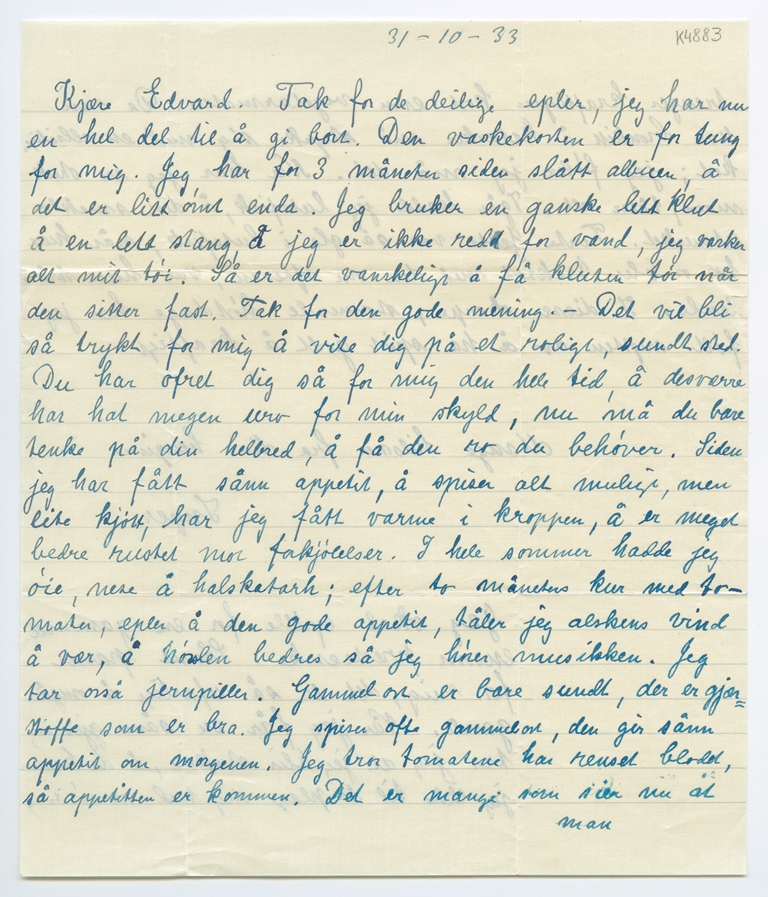 31-10-33
K4883
Kjære Edvard. Tak for de deilige epler, jeg har nu
en hel del til å gi bort. Den vaskekosten er for tung
for mig. Jeg har for 3 måneter siden slått albuen, å
det er litt ömt enda. Jeg bruker en ganske lett klut
å en lett stang, å jeg er ikke redd for vand, jeg vasker
alt mit töi. Så er det vanskeligt å få kluten tör når
den sitter fast. Tak for den gode mening. – Det vil bli
så trykt for mig å vite dig på et roligt, sundt sted.
Du har ofret dig så for mig den hele tid, å desværre
har hat megen uro for min skyld, nu må du bare
tenke på din helbred, å få den ro du behöver. Siden
jeg har fått sånn appetit, å spiser alt muligt, men
lite kjött, har jeg fått varme i kroppen, å er meget
bedre rustet mot forkjölelser. I hele sommer hadde jeg
öie, nese å halskatarh; efter to måneters kur med to-
mater, epler å den gode appetit, tåler jeg alskens vind
å vær, å hörslen bedres så jeg hörer musikken. Jeg
tar osså jernpiller. Gammelost er bare sundt, der er gjær=
stoffe som er bra. Jeg spiser ofte gammelost, den gir sånn
appetit om morgenen. Jeg tror tomatene har renset blodet,
så appetitten er kommen. Det er mange som sier nu at
man